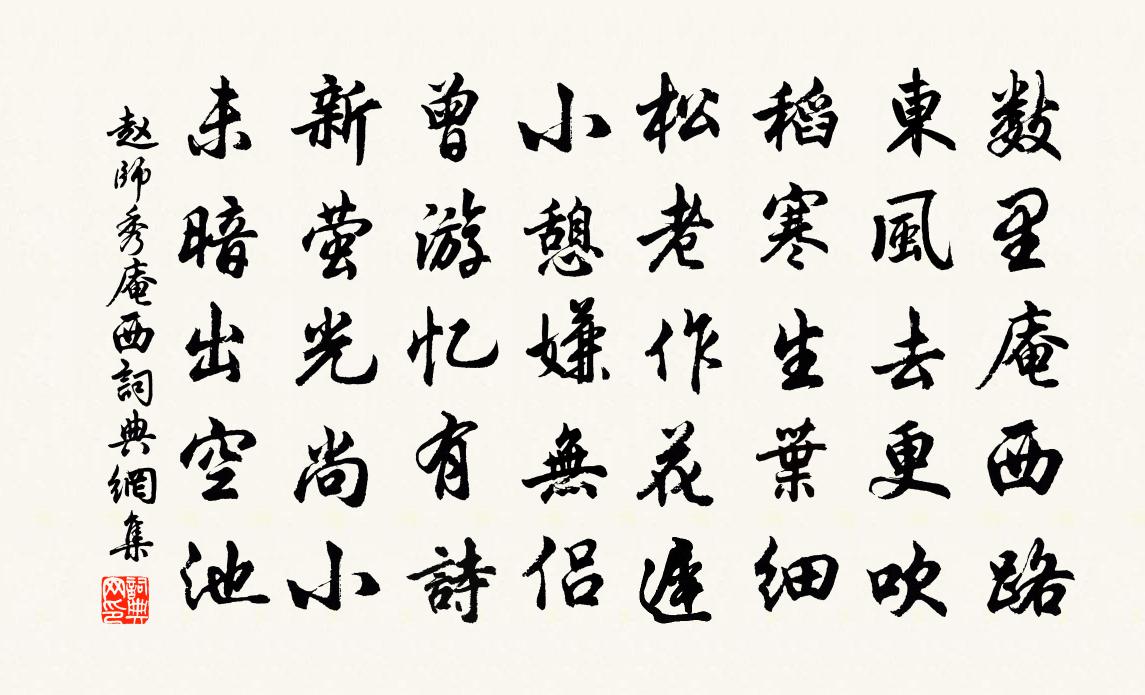 数里庵西路
東風去更吹
稻寒生葉細
松老作花遲
小憩嫌無侣
曾游忆有詩
新萤光尚小
未暗出空池
赵師秀庵西詞典網集
詞典
网印